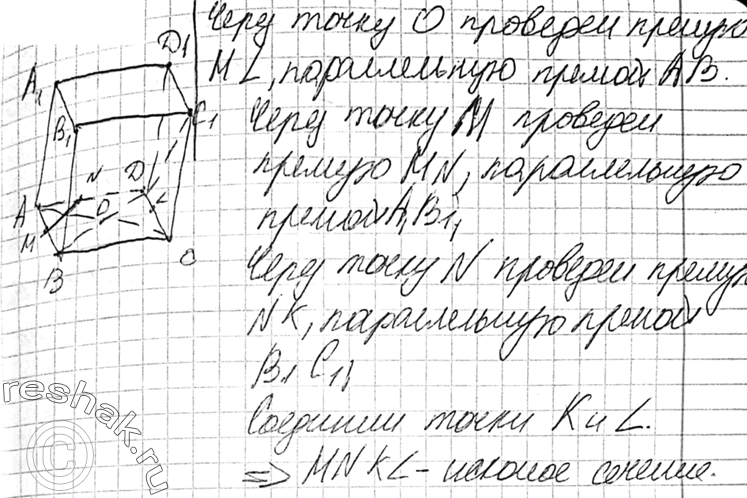 Через точку O проведем прямую
ML, параллельную прямой AB.
Через точку M проведем
прямую MN, параллельную
прямой A₁B₁,
Через точку N проведем прямую
NK, параллельную прямой
B₁C₁,
Соединим точки K и L.
=> MNKL - искомое сечение.
A₁ D₁
B₁ C₁
A N D
M O L
B C
reshak.ru
©